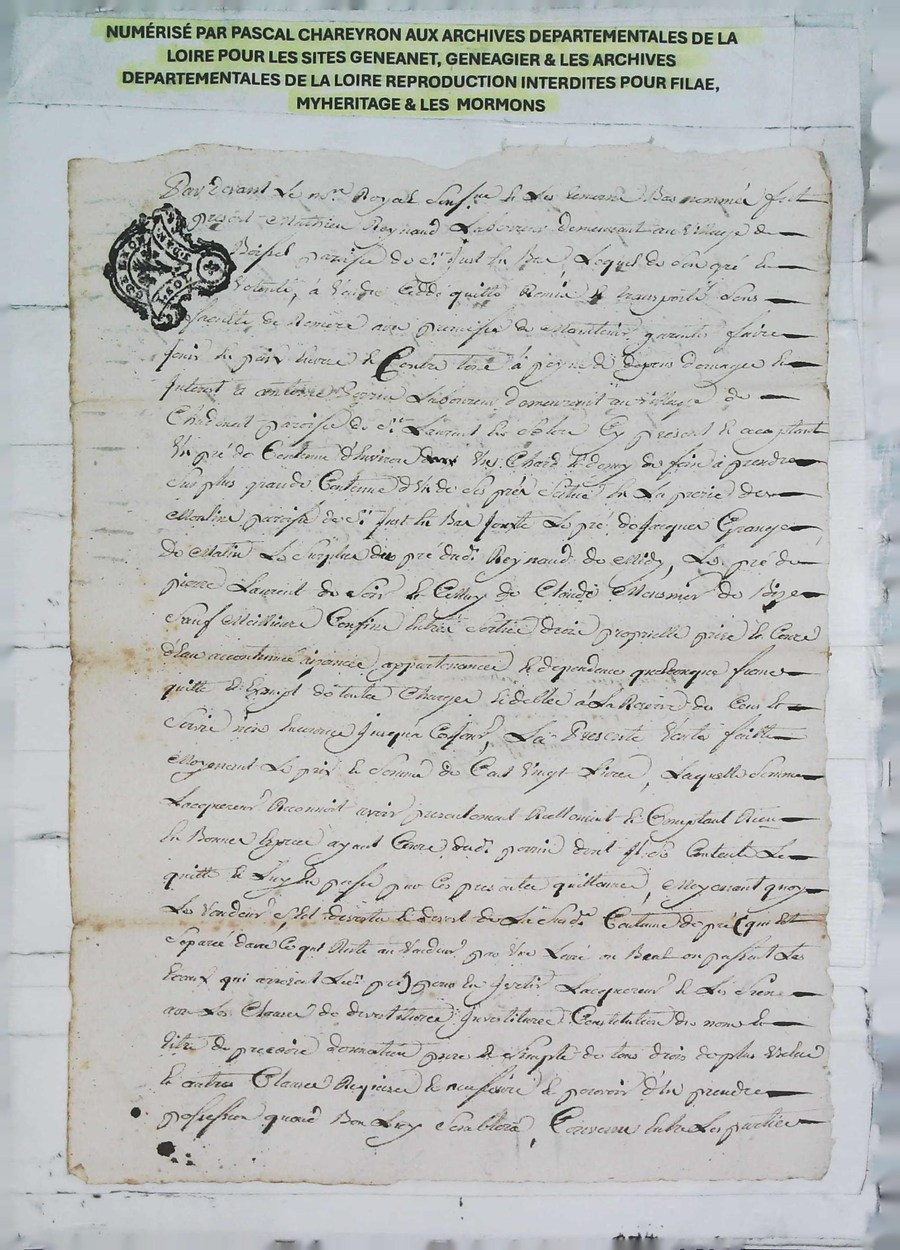 NUMÉRISÉ PAR PASCAL CHAREYRON AUX ARCHIVES DEPARTEMENTALES DE LA
LOIRE POUR LES SITES GENEANET, GENEAGIER & LES ARCHIVES
DEPARTEMENTALES DE LA LOIRE REPRODUCTION INTERDITES POUR FILAE,
MYHERITAGE & LES MORMONS
Par devant Le no.re Royal soub.ne Et Les temoins Bas nommés fut
present Mathieu Reynaud Laboureur demeurant au Village de
paroisse de St Just En Bas, Lequel de son gré Et
Volonté, a Vendu Cédé quitté Remis Et transporté sans
faculté de Remere avec promesse de Maintenir garantir faire
jouir Et paix Envers Et Contre tous à peyne de depens domages Et
Interest a Laboureur demeurant au Village de
paroisse de St Laurent Cy present Et acceptant
Un pré de Contenue d'Environ Un Chard Et demy de foin à prendre
sur plus grande Contenue d'Un de ses prés situé En La prerie des
Moulins paroisse de St Just En Bas joute Le pré de Jacques Grange
De Matin Le surplus du pré dud. Reynaud de Midy, Le pré de
pierre Laurent de soir Et Celluy de Claude de Bize
sauf Meilleurs Confins Entrées sorties drois proprietté prise Et Cours
d'Eau accoutumée appartenances Et dependance quelconque franc
quitte Et Exempt de toutes Charges Et debtes à La Reserve du Cens Et
servis noix Encourus jusqu'a Ce jour, La Presente Vente faitte
Moyenant Le prix Et somme de Cent Vingt Livres, Laquelle somme
avoir presentement Reellement Et Comptant Receu
En Bonnes Especes ayant Cours dont Il se Contente L'en
quitte Et Luy En passe par Ces presentes quittance, Moyenant quoy
Le Vendeur s'est devestu Et devest de La susd. Contenue de pré (qui est
separée davec Ce qui Reste au Vendeur par Une ou Beal en passant Les
Eaux qui arrosent Led. pré) pour En Investir Lacquereur Et Les siens
avec Les Clauses de devestitures Investitures Constitution de nom Et
titre de precaire donnation pure Et simple de tous drois de plus Value
Et autres Clauses Requises Et necessaires Et pouvoir d'En prendre
possession quand Bon Luy semblera, Convenu Entre Les parties